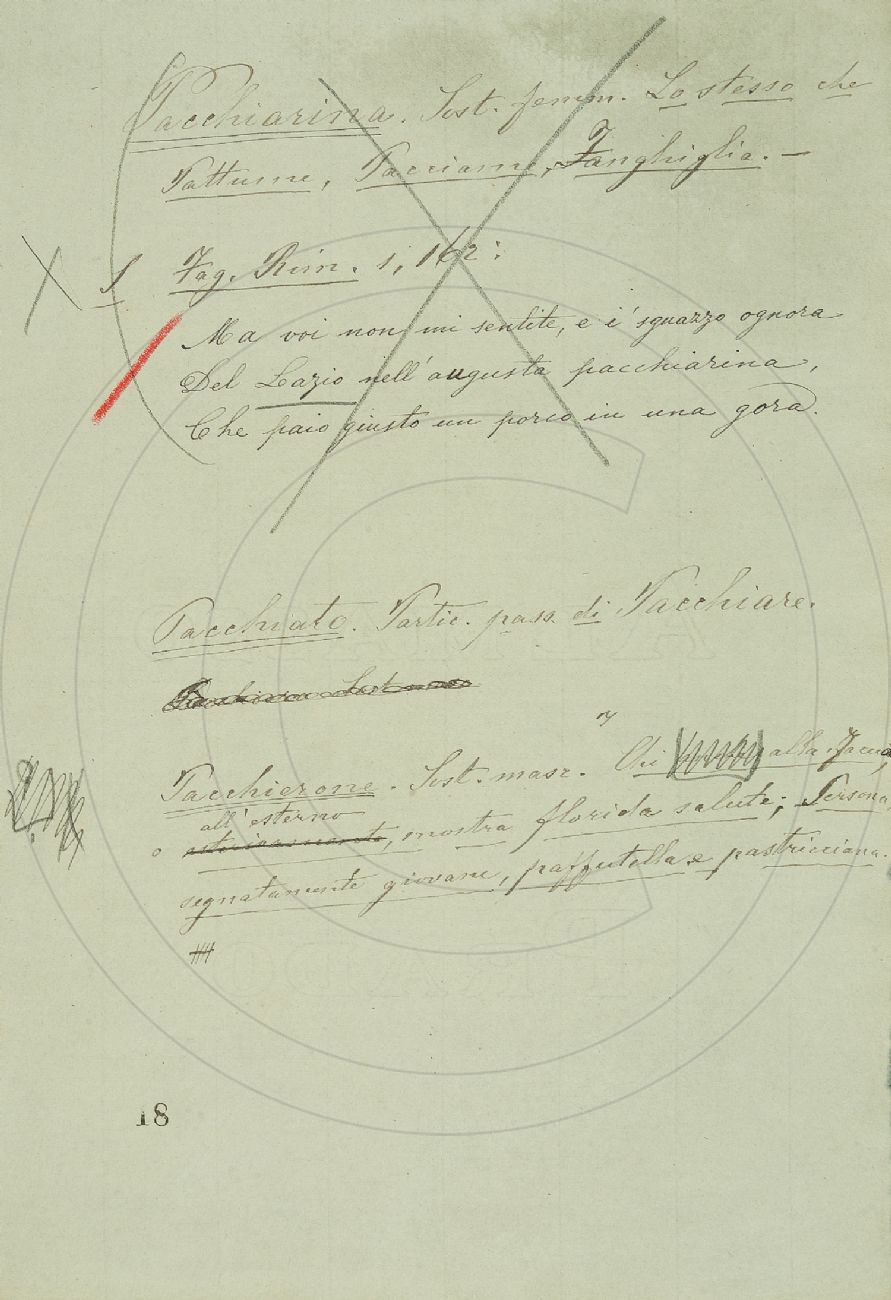 Pacchiarina. Sost. femm. Lo stesso che
Pattume, Pacciame, Fanghiglia. —
§ Fag. Rim. 1, 162:
Ma voi non mi sentite, e i' sguazzo ognora
Del Lazio nell'augusta pacchiarina,
Che paio giusto un porco in una gora.
Pacchiato. Partic. pass. di Pacchiare.
Pacchierone. Sost. masc. Chi alla faccia,
all'esterno
o estericamente, mostra florida salute; Persona,
segnatamente giovane, paffutella e pastricciana.
18